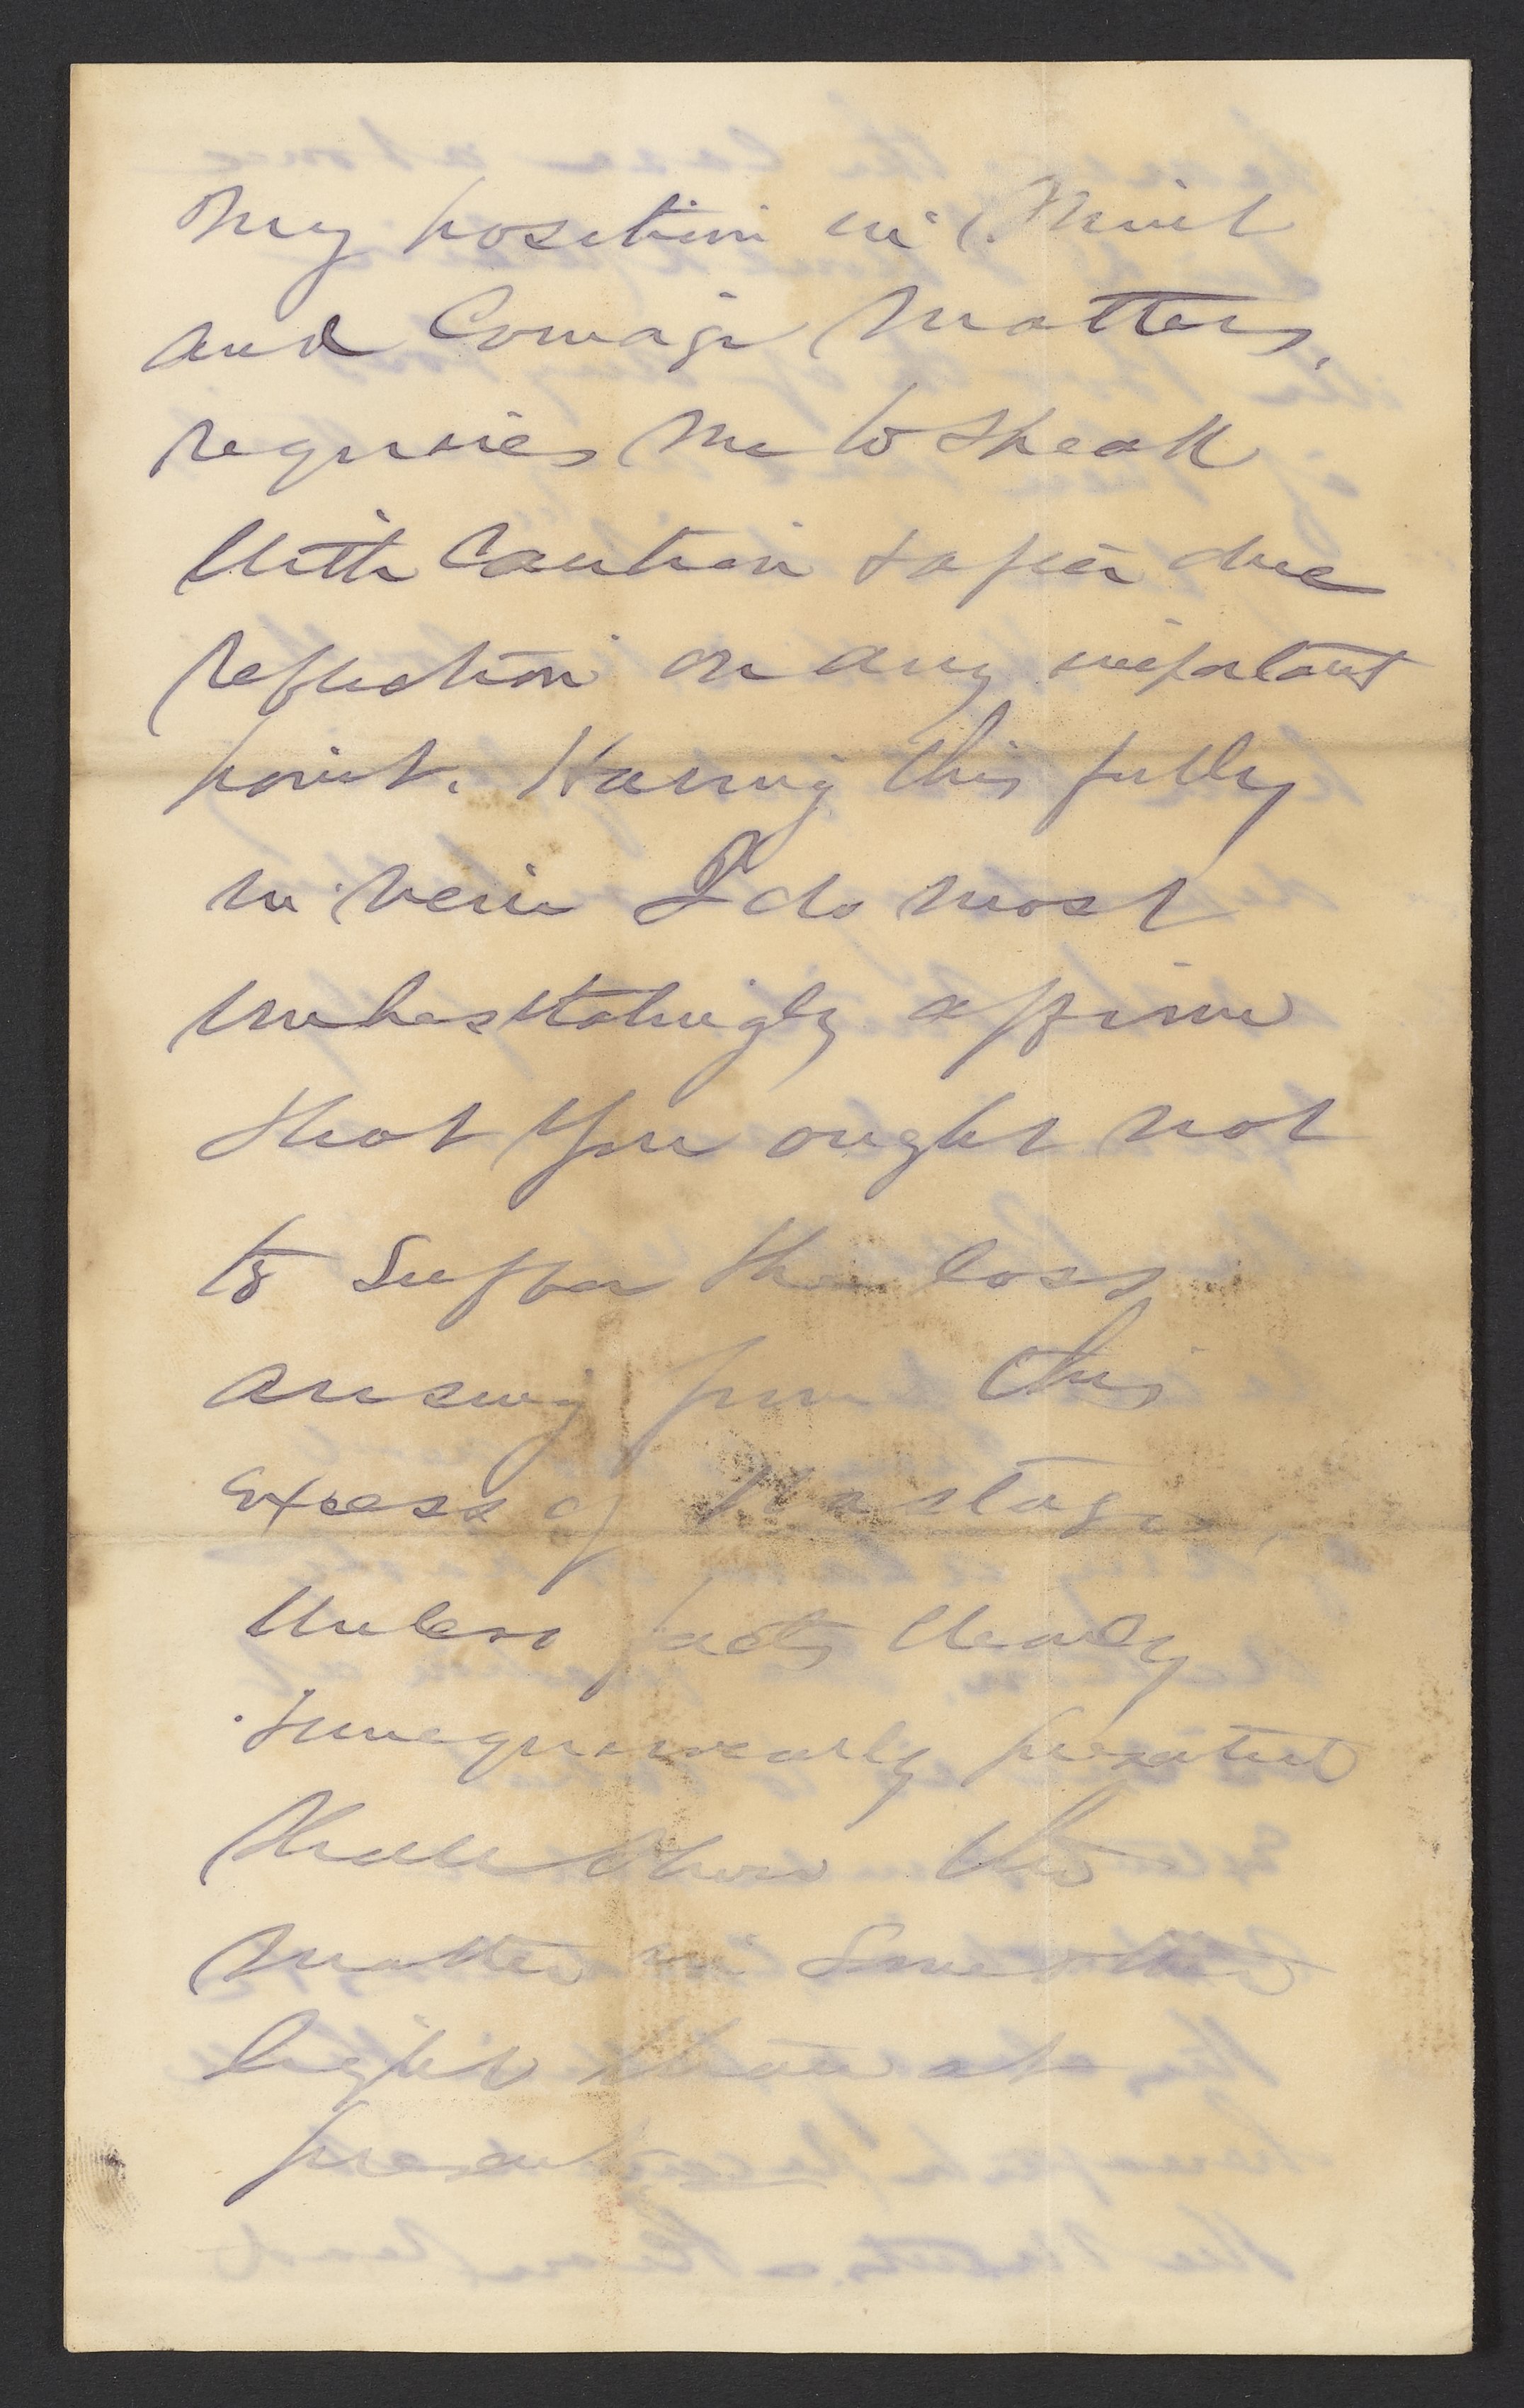 My position in Mint
and Coinage Matters,
requires me to speak
With Caution & after due
reflection on any important
point. Having this fully
in view I do most
unhesitatingly affirm
that you ought not
to Suffer the loss
arising from this
Excess of Wastage,
Unless facts clearly
& unequivocally presented
shall show the
matter in Some other
light than at
present